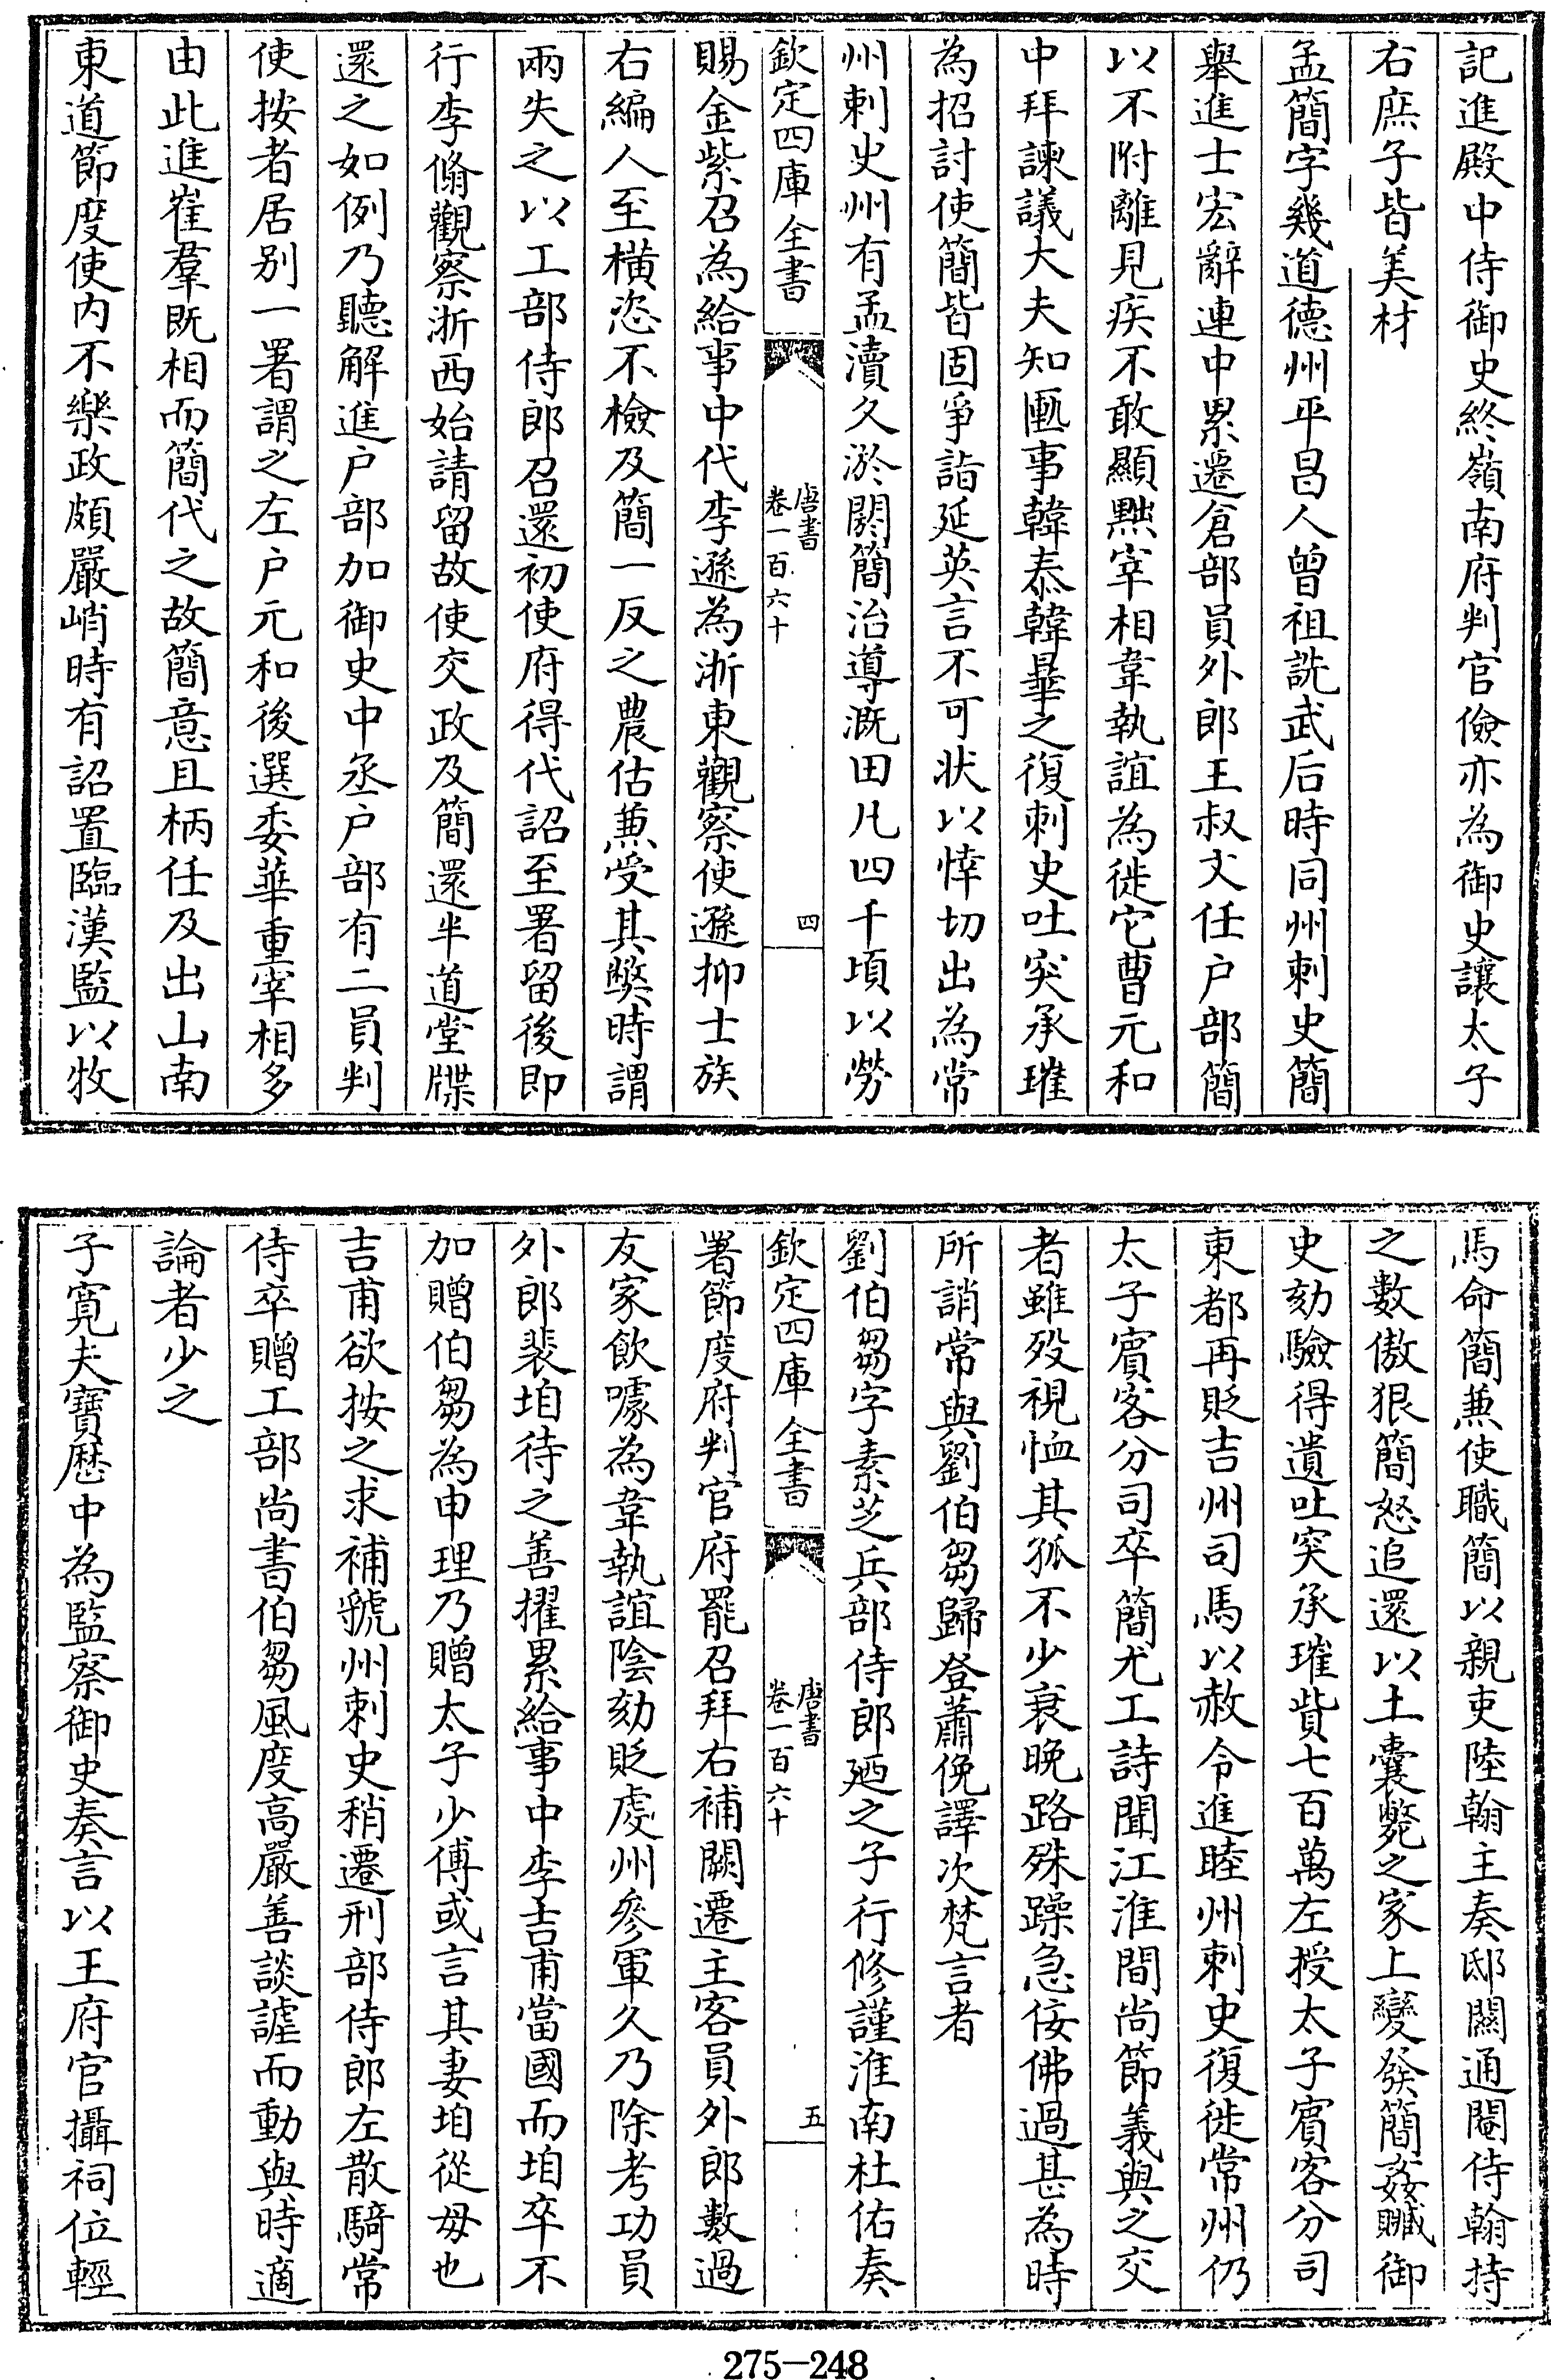 記進殿中侍御史終嶺南府判官儉亦為御史讓太子
右庶子皆美材
孟簡字幾道德州平昌人曾祖詵武后時同州刺史簡
舉進士宏辭連中累遷倉部員外郎王叔文任戶部簡
以不附離見疾不敢顯黜宰相韋執誼為徙它曹元和
中拜諫議大夫知匭事韓泰韓曅之復刺史吐突承璀
為招討使簡皆固爭詣延英言不可狀以悻切出為常
州刺史州有孟瀆久淤閼簡治導溉田凡四千頃以勞
欽定四庫全書
唐書
卷一百六十
四
賜金紫召為給事中代李遜為浙東觀察使遜抑士族
右編人至橫恣不檢及簡一反之農估兼受其獘時謂
兩失之以工部侍郎召還初使府得代詔至署留後即
行李翛觀察浙西始請留故使交政及簡還半道堂牒
還之如例乃聽解進户部加御史中丞户部有二員判
使按者居别一署謂之左户元和後選委華重宰相多
由此進崔羣既相而簡代之故簡意且柄任及出山南
東道節度使内不樂政頗嚴峭時有詔置臨漢監以牧
馬命簡兼使職簡以親吏陸翰主奏邸關通閹侍翰持
之數傲狠簡怒追還以土囊斃之家上變發簡姦贓御
史劾驗得遺吐突承璀貲七百萬左授太子賓客分司
東都再貶吉州司馬以赦令進睦州刺史復徙常州仍
太子賓客分司卒簡尤工詩聞江淮間尚節義與之交
者雖歿視恤其孤不少衰晚路殊躁急佞佛過甚為時
所誚常與劉伯芻歸登蕭俛譯次梵言者
劉伯芻字素芝兵部侍郎廼之子行修謹淮南杜佑奏
欽定四庫全書
唐書
卷一百六十
五
署節度府判官府罷召拜右補闕遷主客員外郎數過
友家飲噱為韋執誼陰劾貶虔州參軍久乃除考功員
外郎裴垍待之善擢累給事中李吉甫當國而垍卒不
加贈伯芻為申理乃贈太子少傅或言其妻垍從母也
吉甫欲按之求補虢州刺史稍遷刑部侍郎左散騎常
侍卒贈工部尚書伯芻風度高嚴善談謔而動與時適
論者少之
子寬夫寶歷中為監察御史奏言以王府官攝祠位輕
275-248